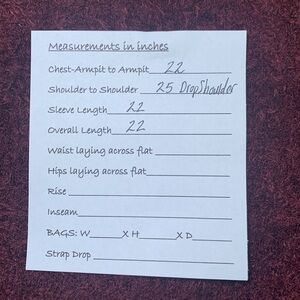 Measurements in inches
Chest-Armpit to Armpit 22
Shoulder to Shoulder 25 Drop Shoulder
Sleeve Length 22
Overall Length 22
Waist laying across flat
Hips laying across flat
Rise
Inseam
BAGS: W X H X D
Strap Drop